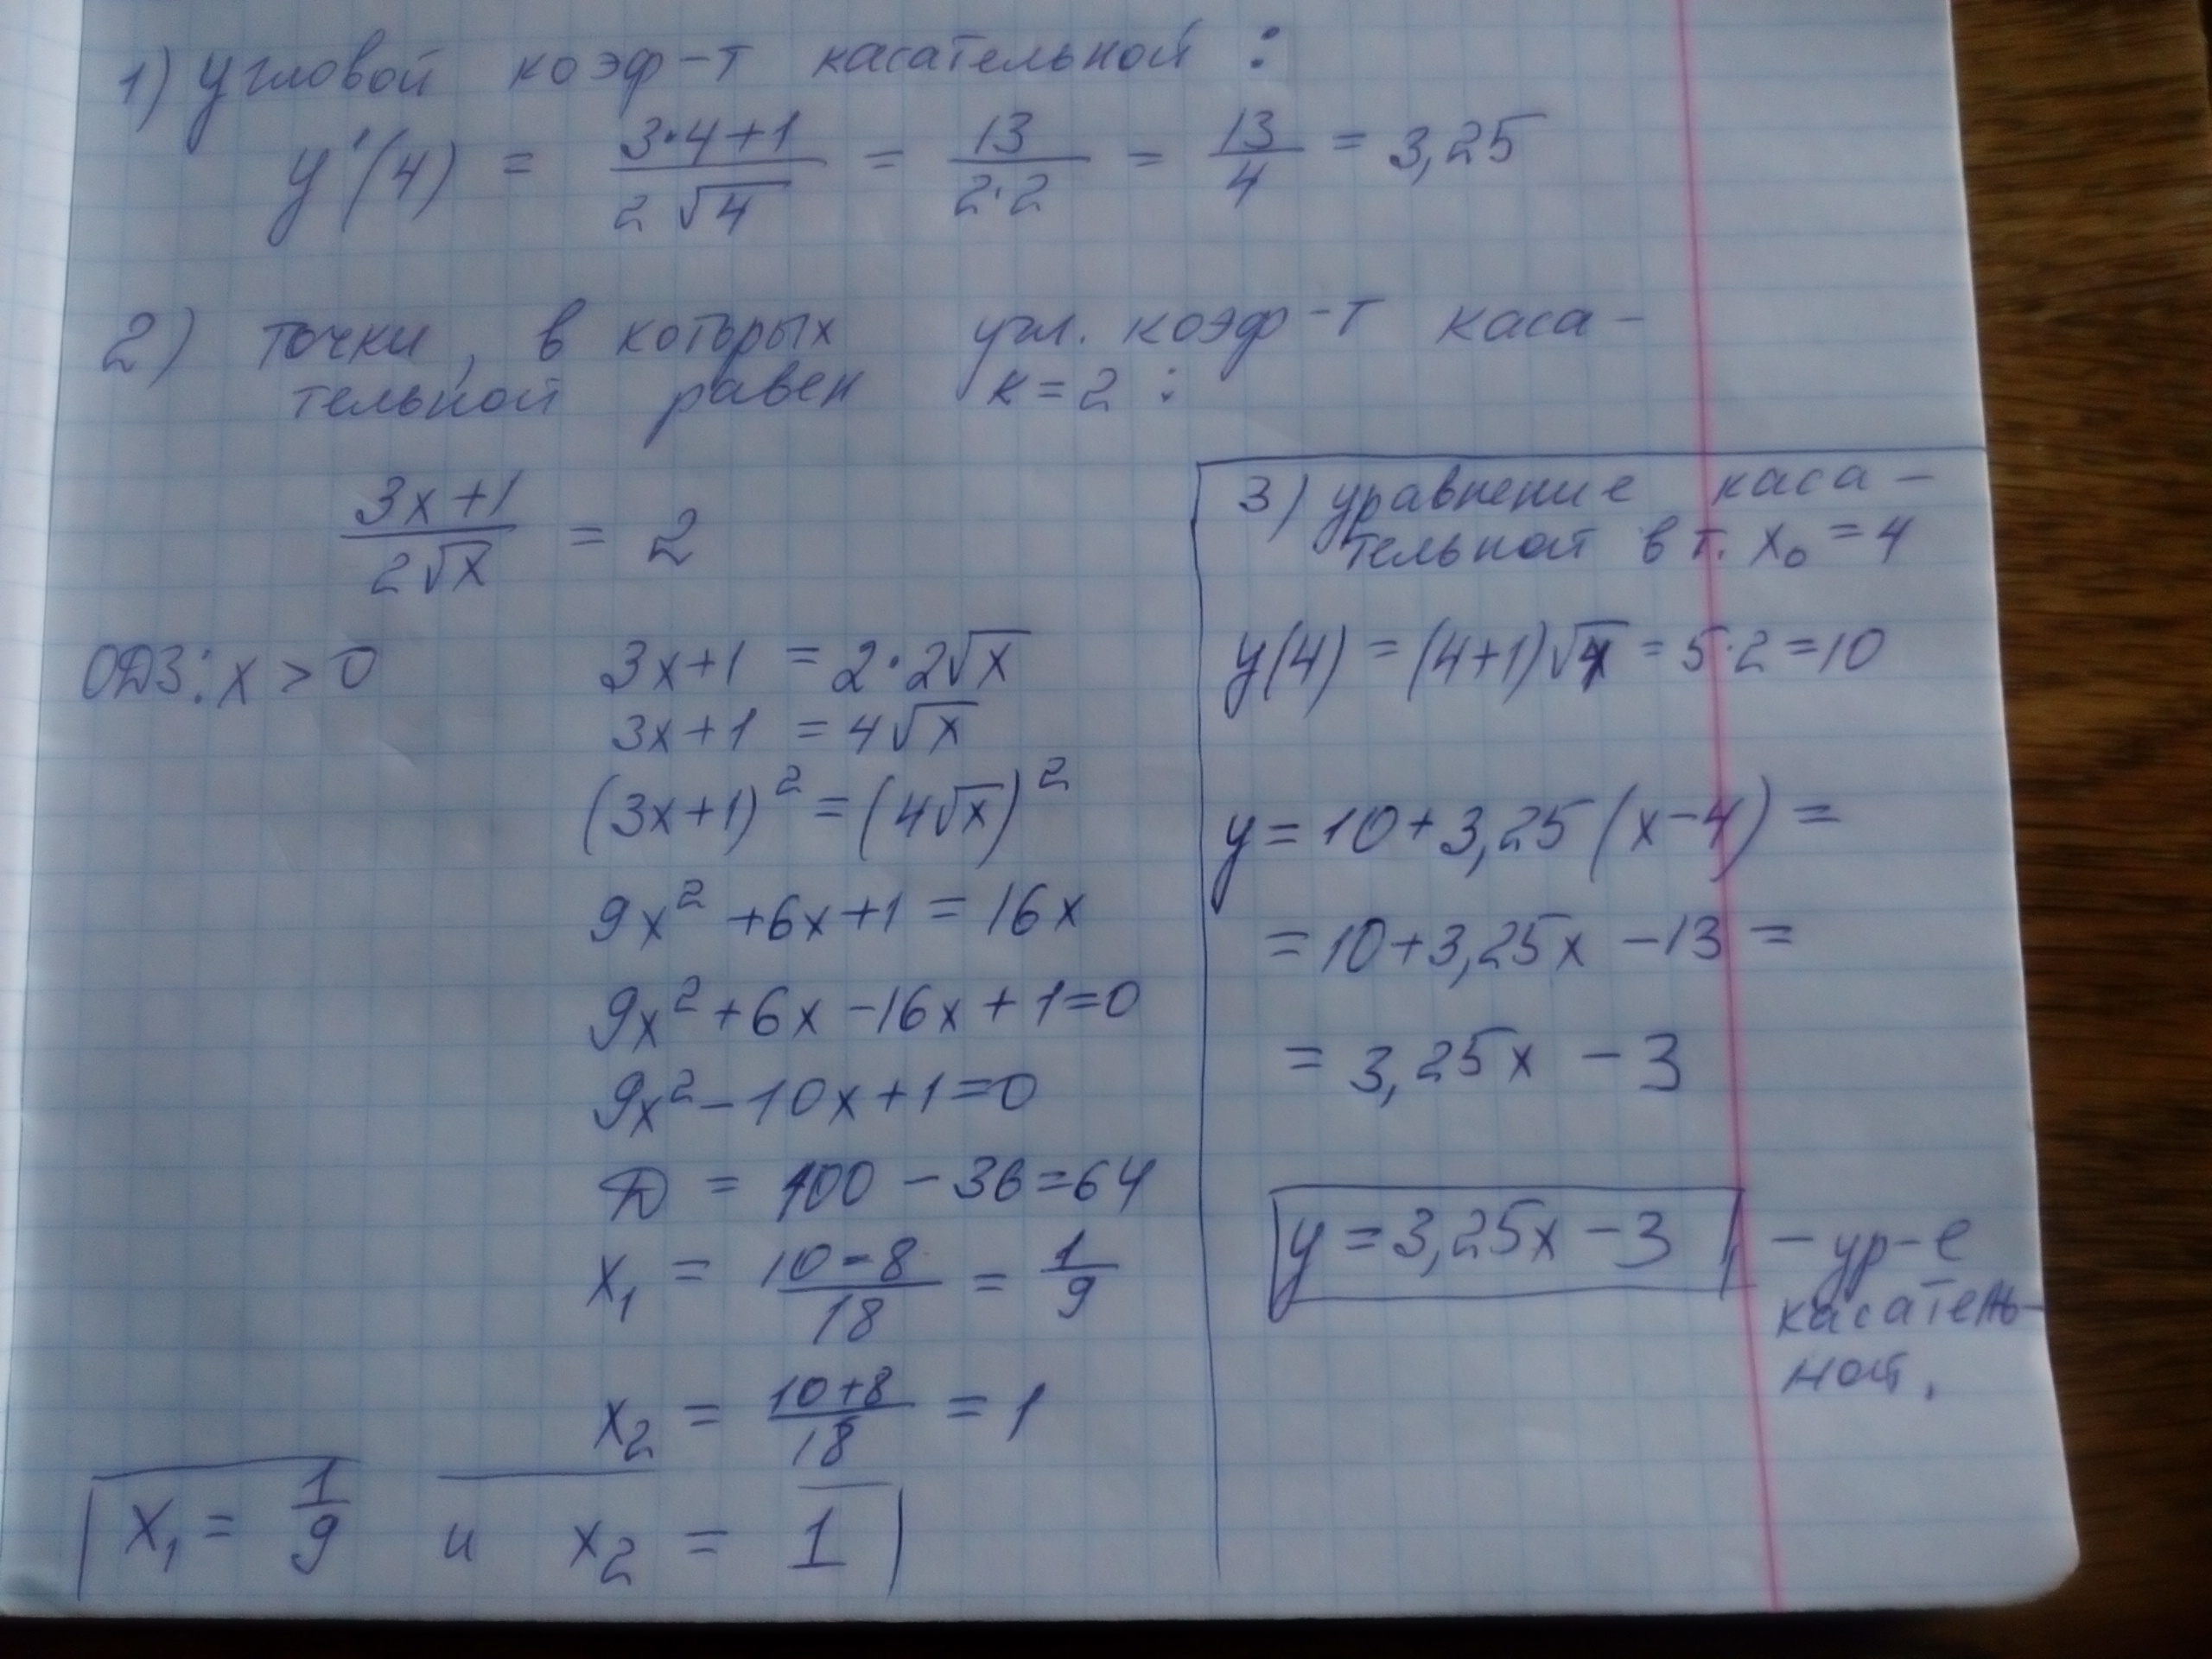 1) Угловой коэф-т касательной :
y'(4) = (3·4+1)/(2√4) = 13/(2·2) = 13/4 = 3,25
2) точки, в которых угл. коэф-т каса-
тельной равен к = 2 :
(3x+1)/(2√x) = 2
ОДЗ: x > 0
3x+1 = 2·2√x
3x+1 = 4√x
(3x+1)² = (4√x)²
9x² +6x+1 = 16x
9x² +6x -16x + 1=0
9x² - 10x+1=0
D = 100 - 36 = 64
x₁ = (10-8)/18 = 1/9
x₂ = (10+8)/18 = 1
x₁ = 1/9 и x₂ = 1
3) уравнение каса-
тельной в т. x₀ = 4
y(4) = (4+1)√4 = 5·2 = 10
y = 10+3,25(x-4) =
= 10+3,25x -13 =
= 3,25x - 3
y = 3,25x - 3 - ур-е
касатель-
ной.